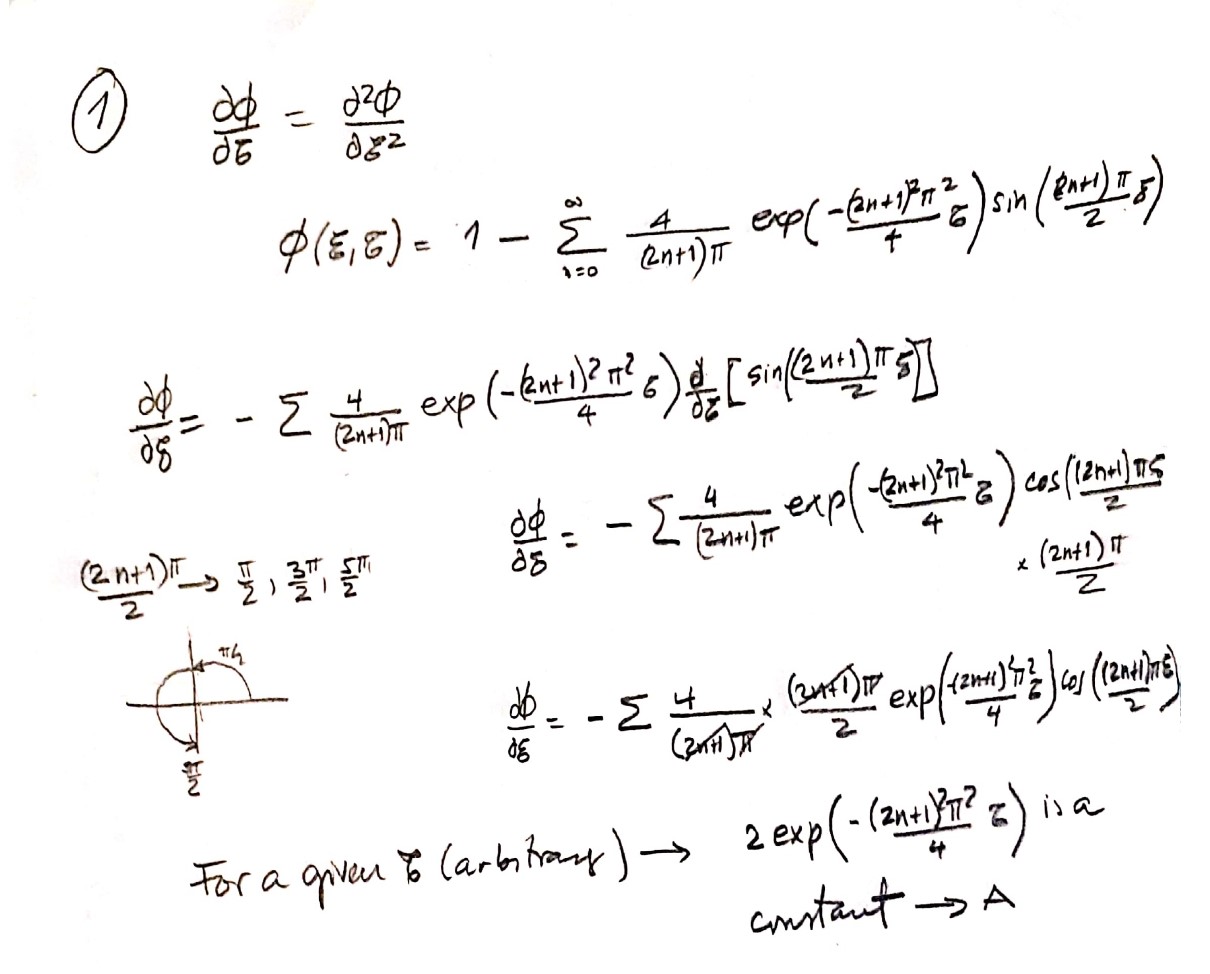 ① ∂ϕ/∂τ = ∂²ϕ/∂ξ²
ϕ(ξ,τ) = 1 − ∑_{n=0}^{∞} 4/((2n+1)π) exp(−(2n+1)²π²/4 τ) sin((2n+1)π/2 ξ)
∂ϕ/∂ξ = − ∑ 4/((2n+1)π) exp(−(2n+1)²π²/4 τ) d/dξ [sin((2n+1)π/2 ξ)]
∂ϕ/∂ξ = − ∑ 4/((2n+1)π) exp(−(2n+1)²π²/4 τ) cos((2n+1)πξ/2
× (2n+1)π/2
(2n+1)π/2 → π/2, 3π/2, 5π/2
π/2
3π/2
∂ϕ/∂ξ = − ∑ 4/((2n+1)π) × (2n+1)π/2 exp(−(2n+1)²π²/4 τ) cos((2n+1)πξ/2)
For a given τ (arbitrary) → 2 exp(−(2n+1)²π²/4 τ) is a
constant → A